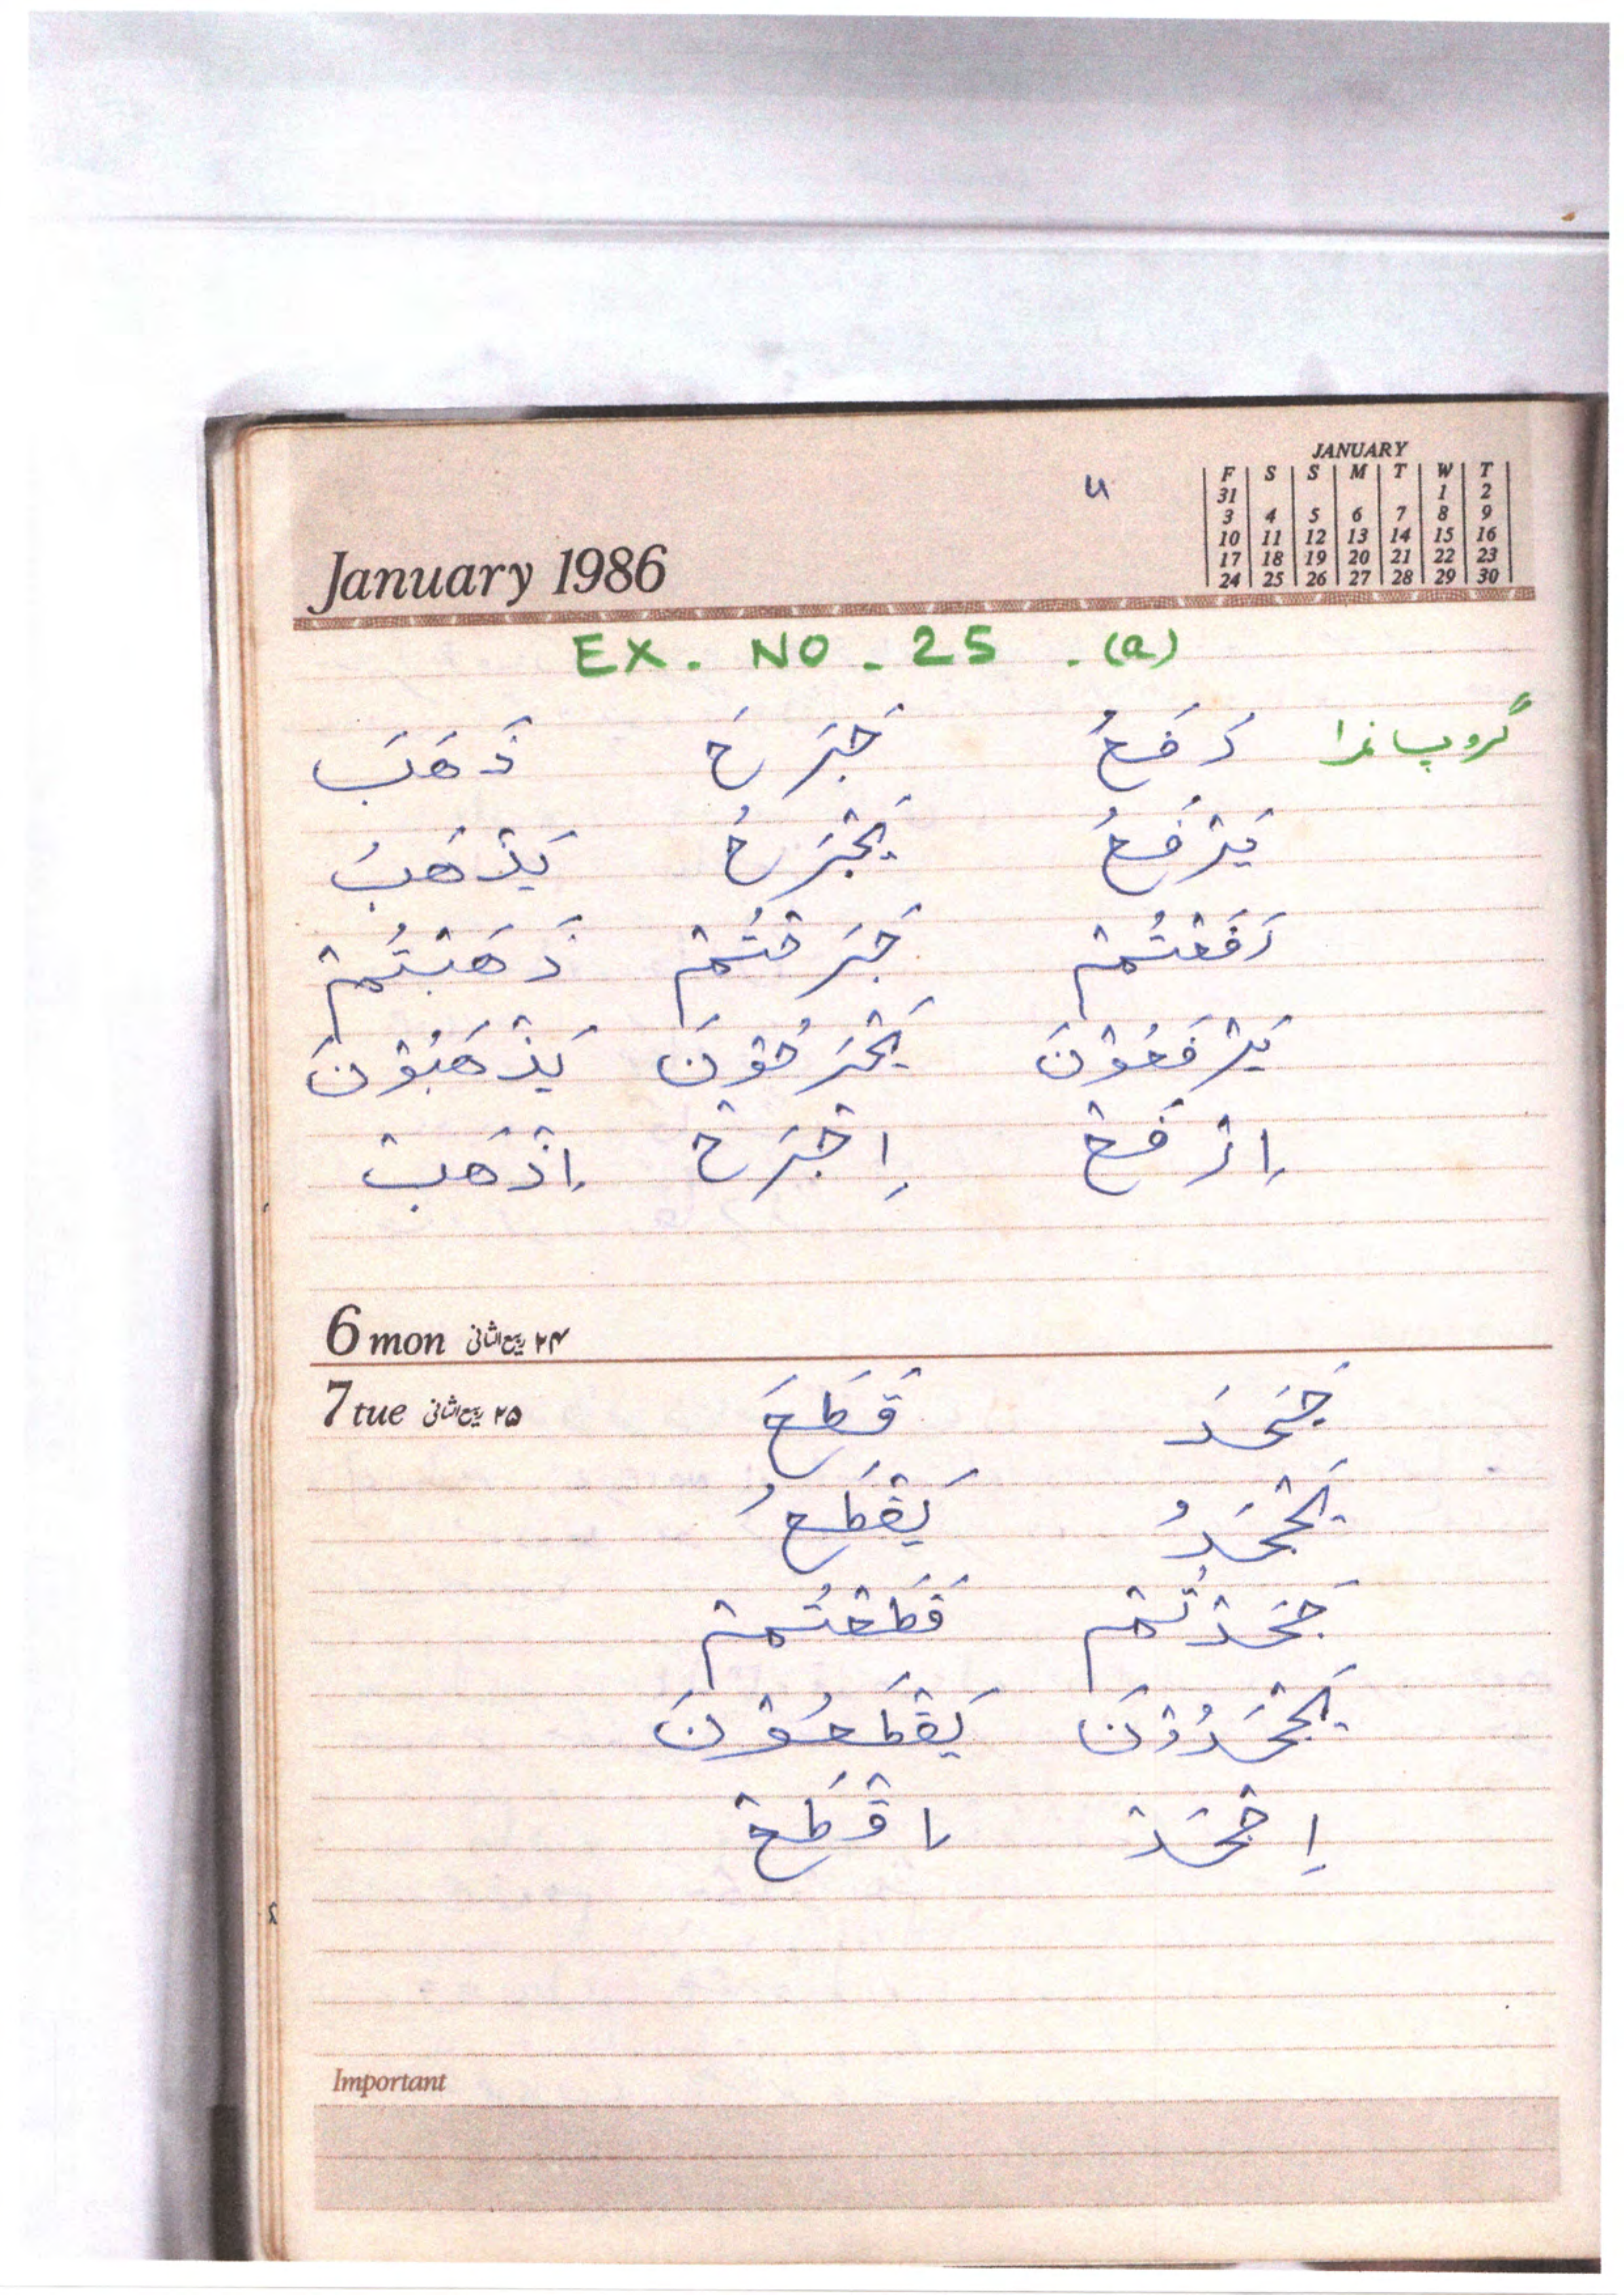 JANUARY
F S S M T W T
31 1 2
3 4 5 6 7 8 9
10 11 12 13 14 15 16
17 18 19 20 21 22 23
24 25 26 27 28 29 30
January 1986
EX. NO - 25 . (a)
رَفَعَ جَرَحَ ذَهَبَ
يَرْفَعُ يَجْرَحُ يَذْهَبُ
رَفَعْتُمْ جَرَحْتُمْ ذَهَبْتُمْ
يَرْفَعُوْنَ يَجْرَحُوْنَ يَذْهَبُوْنَ
اِرْفَعْ اِجْرَحْ اِذْهَبْ
6 mon ۲۴ ربیع الثانی
7 tue ۲۵ ربیع الثانی
جَحَدَ قَطَعَ
يَجْحَدُ يَقْطَعُ
جَحَدْتُّمْ قَطَعْتُمْ
يَجْحَدُوْنَ يَقْطَعُوْنَ
اِجْحَدْ اِقْطَعْ
Important